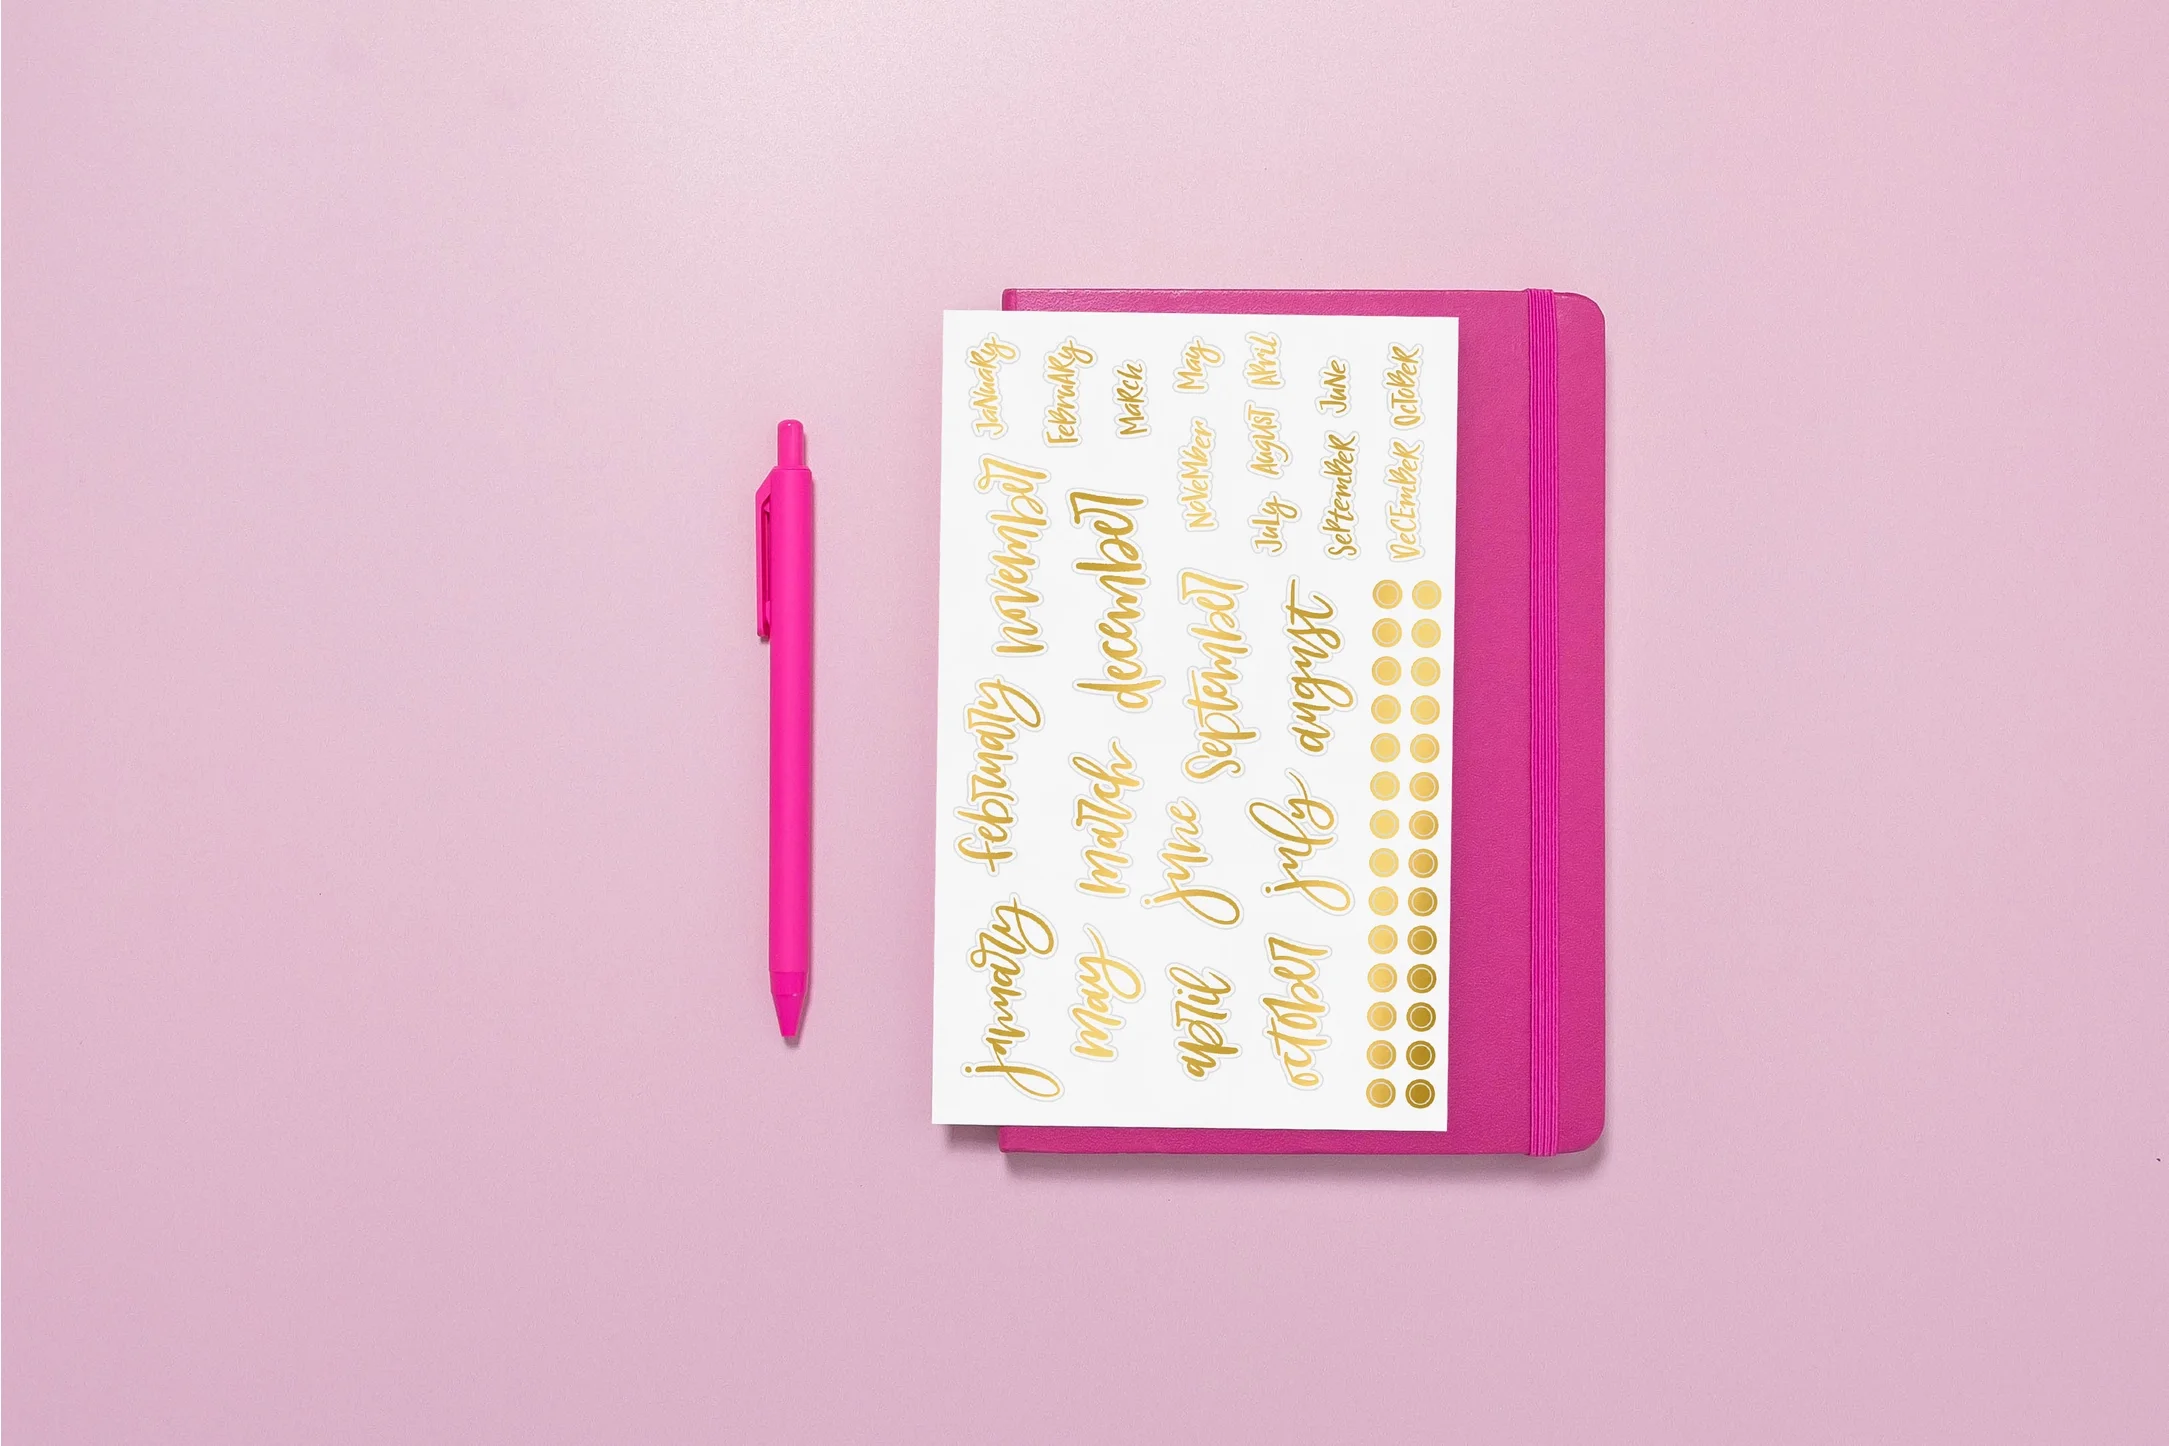 january february november
may march december
april june september
october july august
JaNuaRy
FebruARy
MaRch
NoveMber May
July AuguST APril
SePtemBeR JuNe
DeCEmBeR OcToBeR